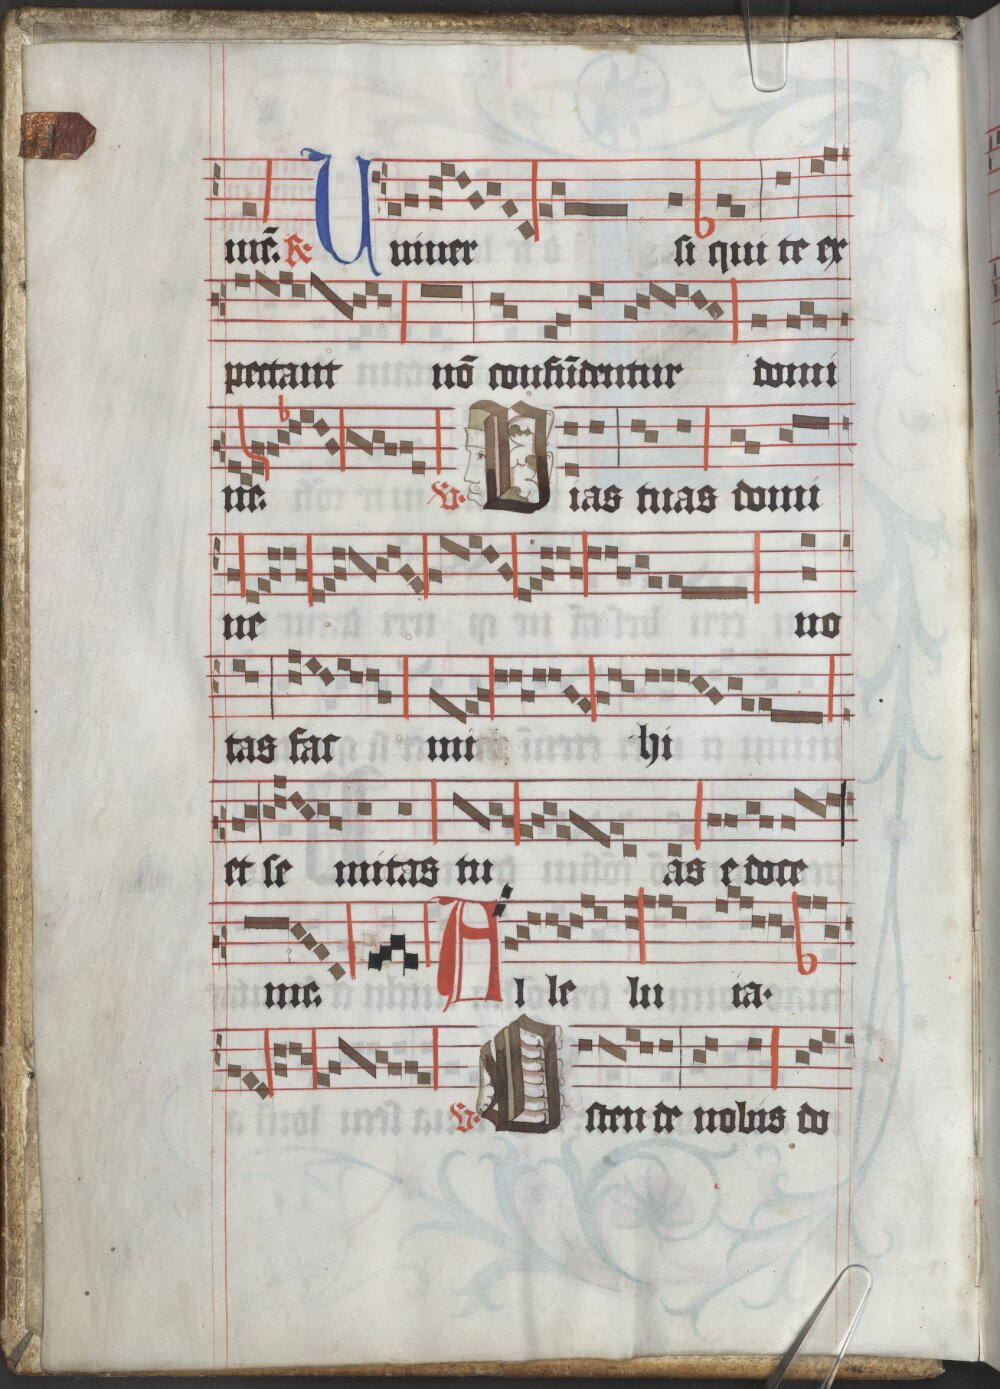 mē. R Uniuer si qui te ex
pectant nō confūdentur domi
ne. V. Uias tuas domi
ne no
tas fac mi hi
et se mitas tu as e doce
me. Al le lu ia.
V. Osten de nobis do